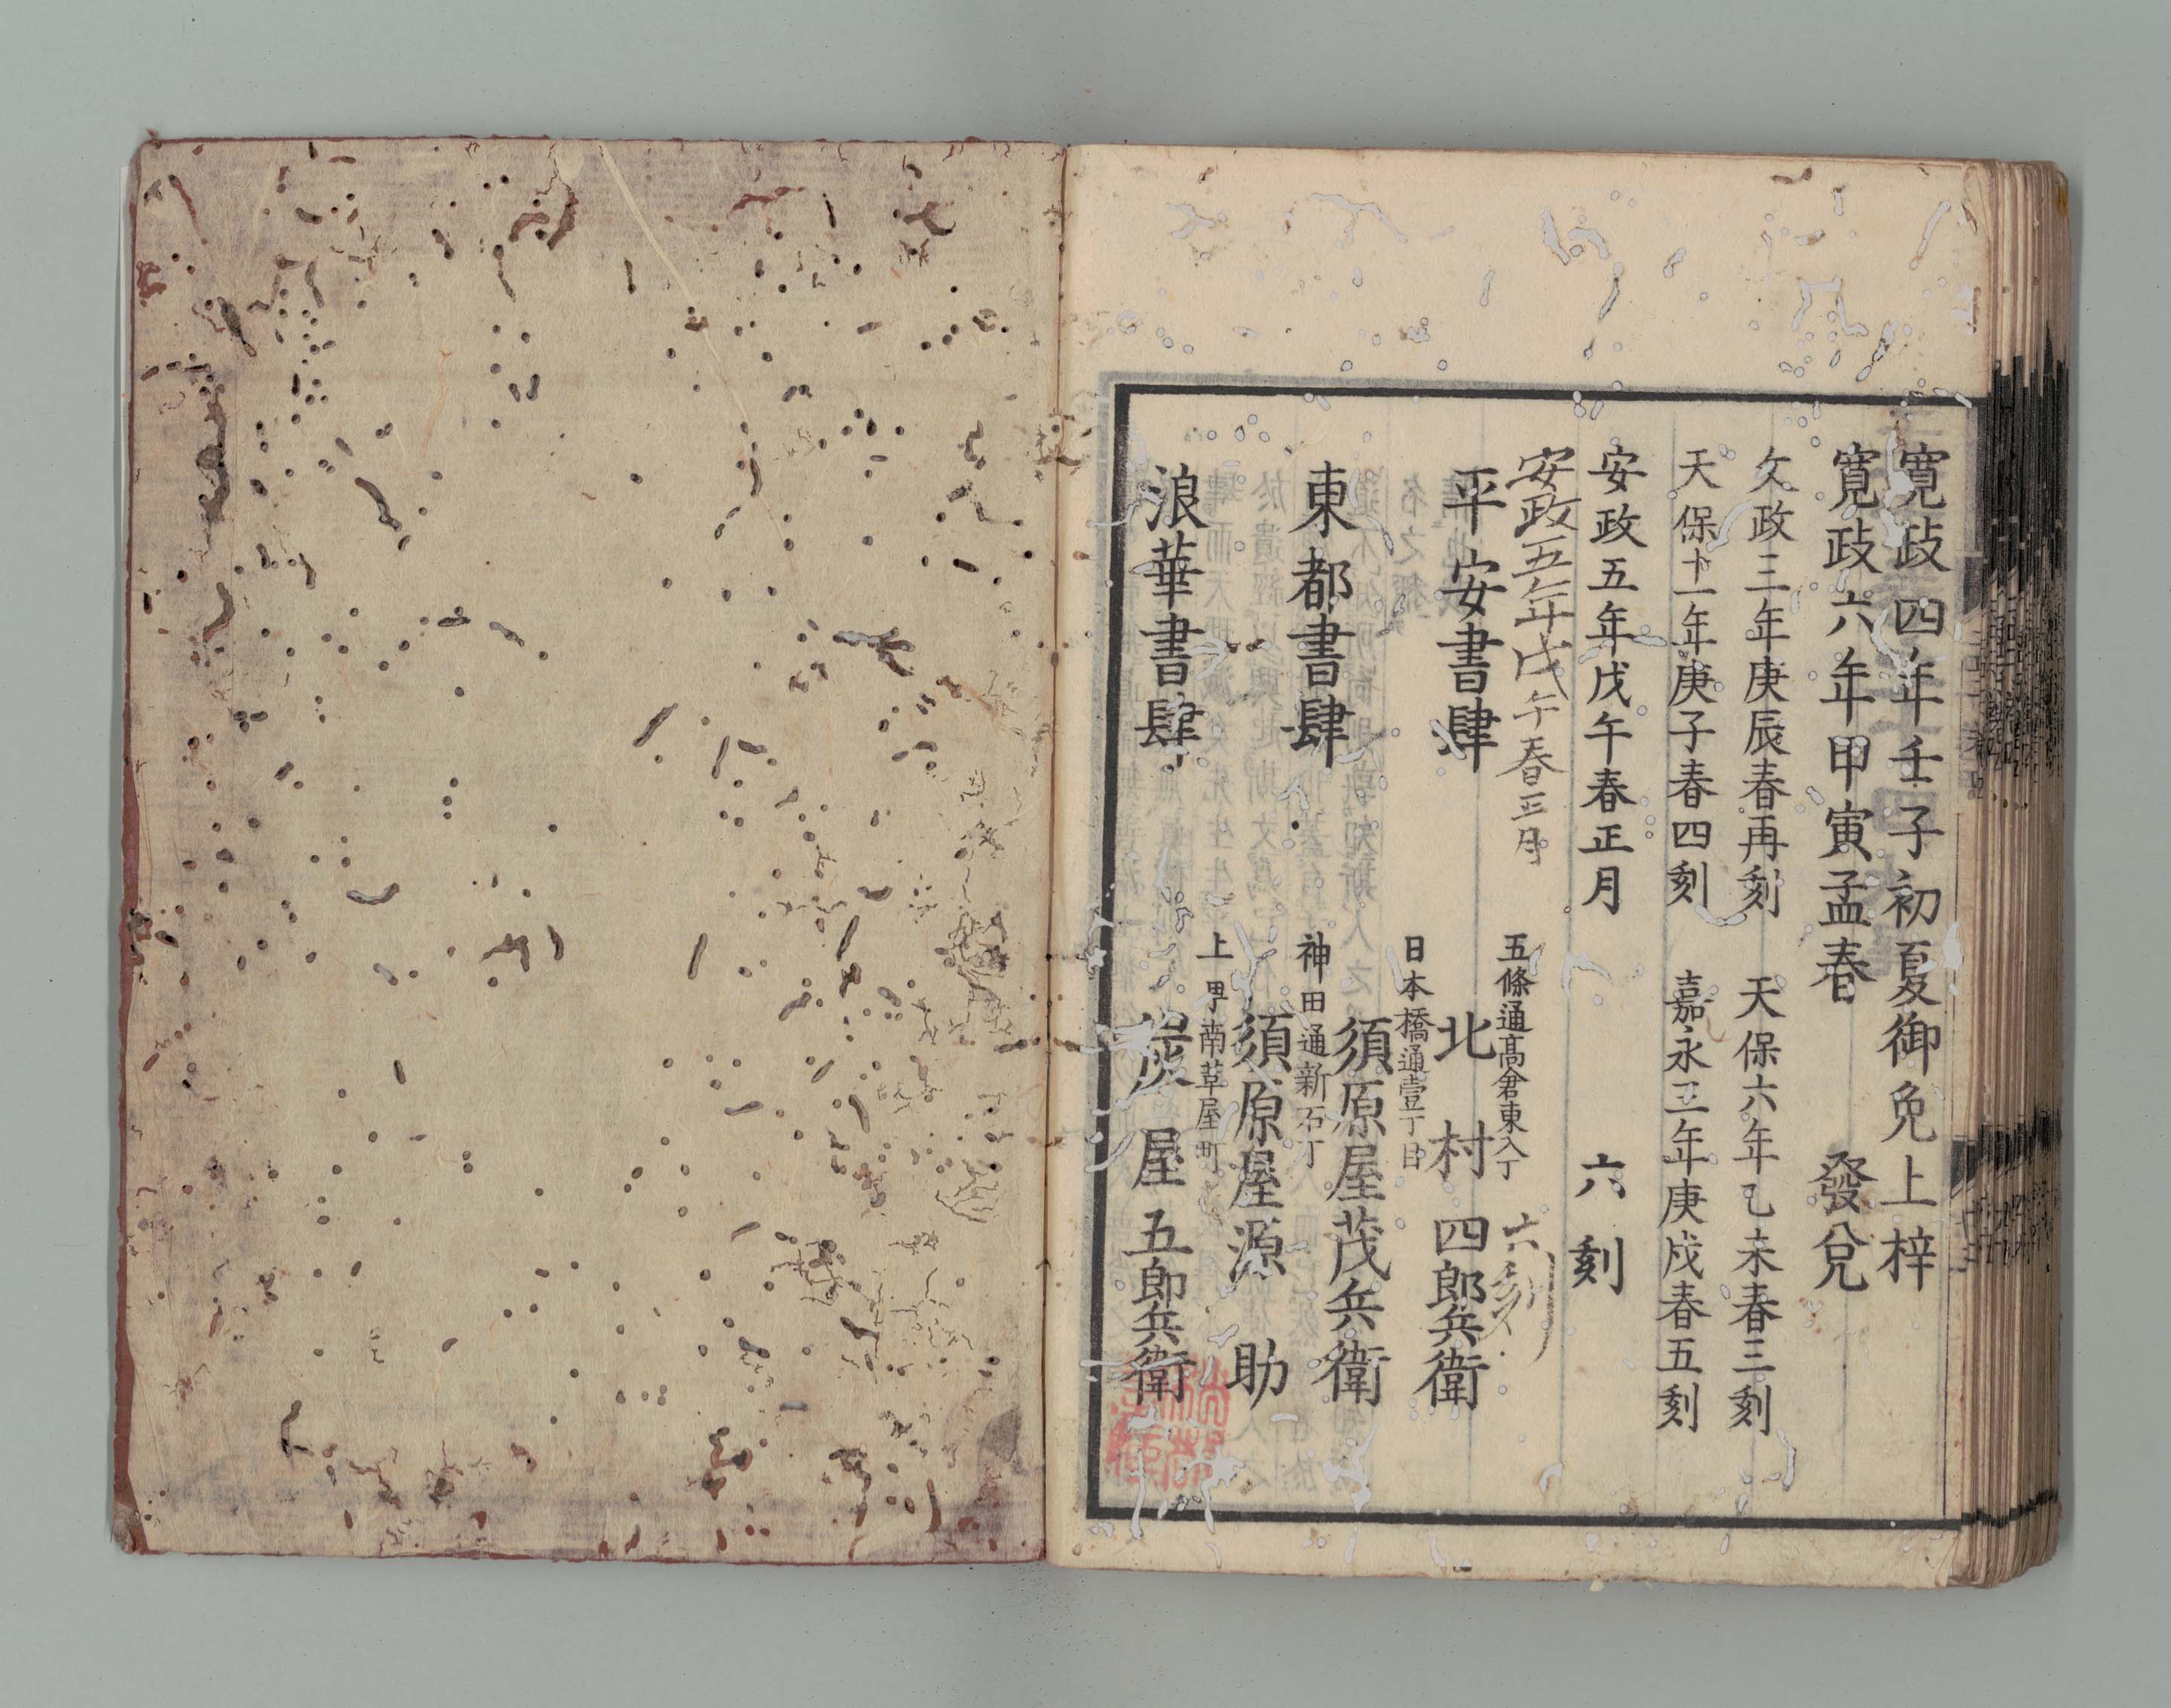 寛政四年壬子初夏御免上梓
寛政六年甲寅孟春 發兌
文政三年庚辰春再刻 天保六年乙未春三刻
天保十一年庚子春四刻 嘉永三年庚戌春五刻
安政五年戊午春正月 六刻
安政五年戊午春正月 六刻
平安書肆
五條通高倉東入丁
北村四郎兵衛
東都書肆
日本橋通壹丁目
須原屋茂兵衛
神田通新石丁
須原屋源助
浪華書肆
上町南草屋町
炭屋五郎兵衛